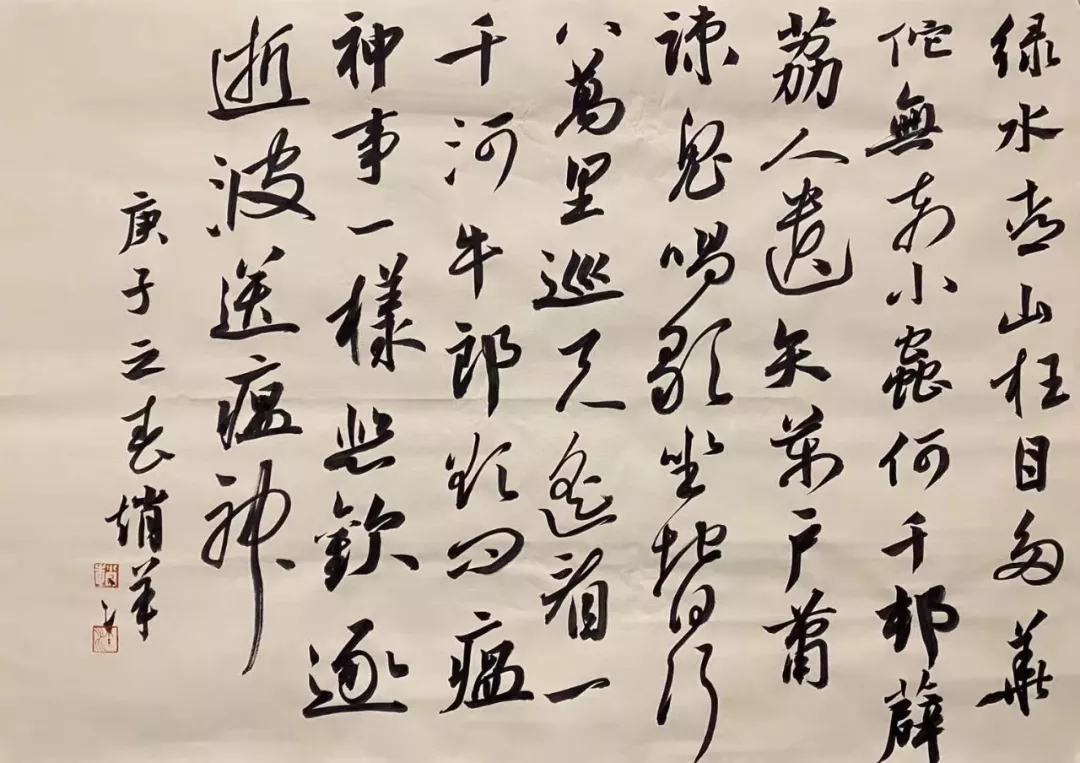 绿水青山枉自多華
佗無奈小蟲何千邨薜
荔人遺矢萬户蕭
疎鬼唱歌坐地日行
八萬里巡天遥看一
千河牛郎欲问瘟
神事一樣悲歡逐
逝波送瘟神
庚子之春